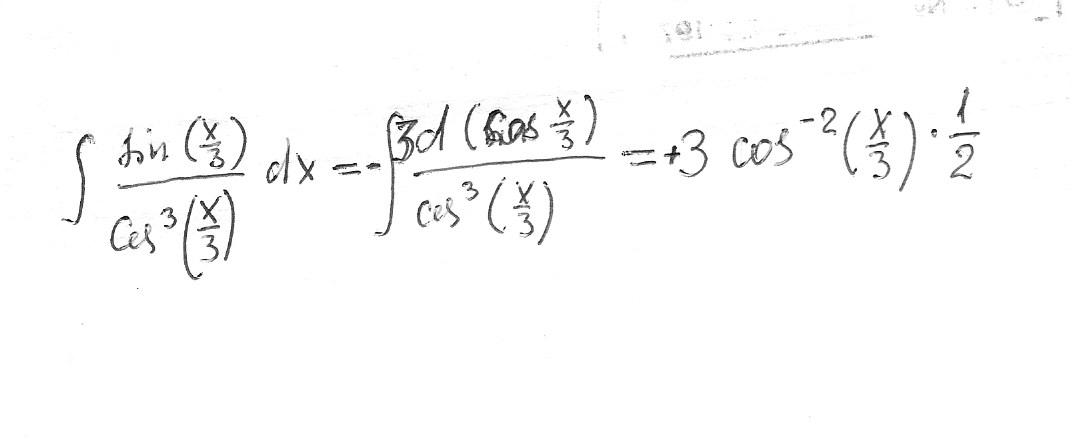 ∫ sin(x/3)/cos³(x/3) dx = -∫ 3d(cos x/3)/cos³(x/3) = +3 cos⁻²(x/3) · 1/2